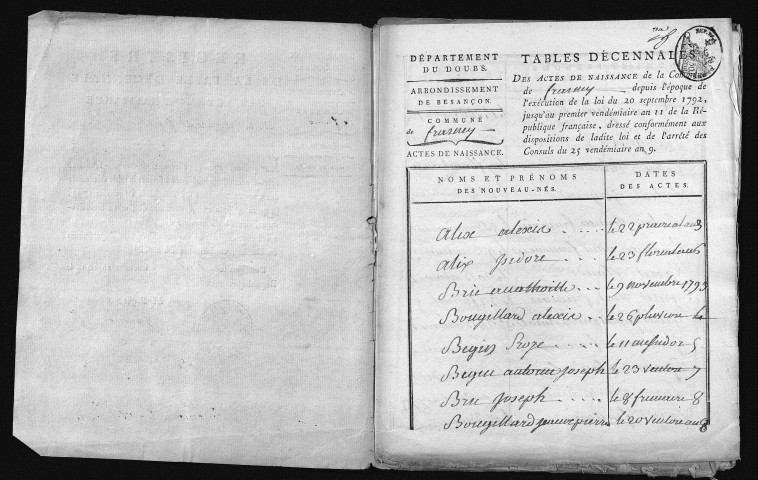 DÉPARTEMENT
DU DOUBS.
ARRONDISSEMENT
DE BESANÇON.
COMMUNE
de frasney
ACTES DE NAISSANCE.
TABLES DÉCENNAL
DES ACTES DE NAISSANCE de la Com
de frasney depuis l'époque de
l'exécution de la loi du 20 septembre 1792,
jusqu'au premier vendémiaire an 11 de la Ré-
publique française, dressé conformément aux
dispositions de ladite loi et de l'arrêté des
Consuls du 25 vendémiaire an 9.
NOMS ET PRÉNOMS
DES NOUVEAU-NÉS.
DATES
DES ACTES.
alix alexis le 22 prairial an 3
alix isidore le 23 floreal an 6
Brie le 9 novembre 1793
Bougillard alexis le 26 pluviose 4
Begin Roze le 11 messidor 5
Begin antoine joseph le 23 ventose 7
Brie joseph le 8 frimaire 8
Bougillard pierre le 20 ventose an 8